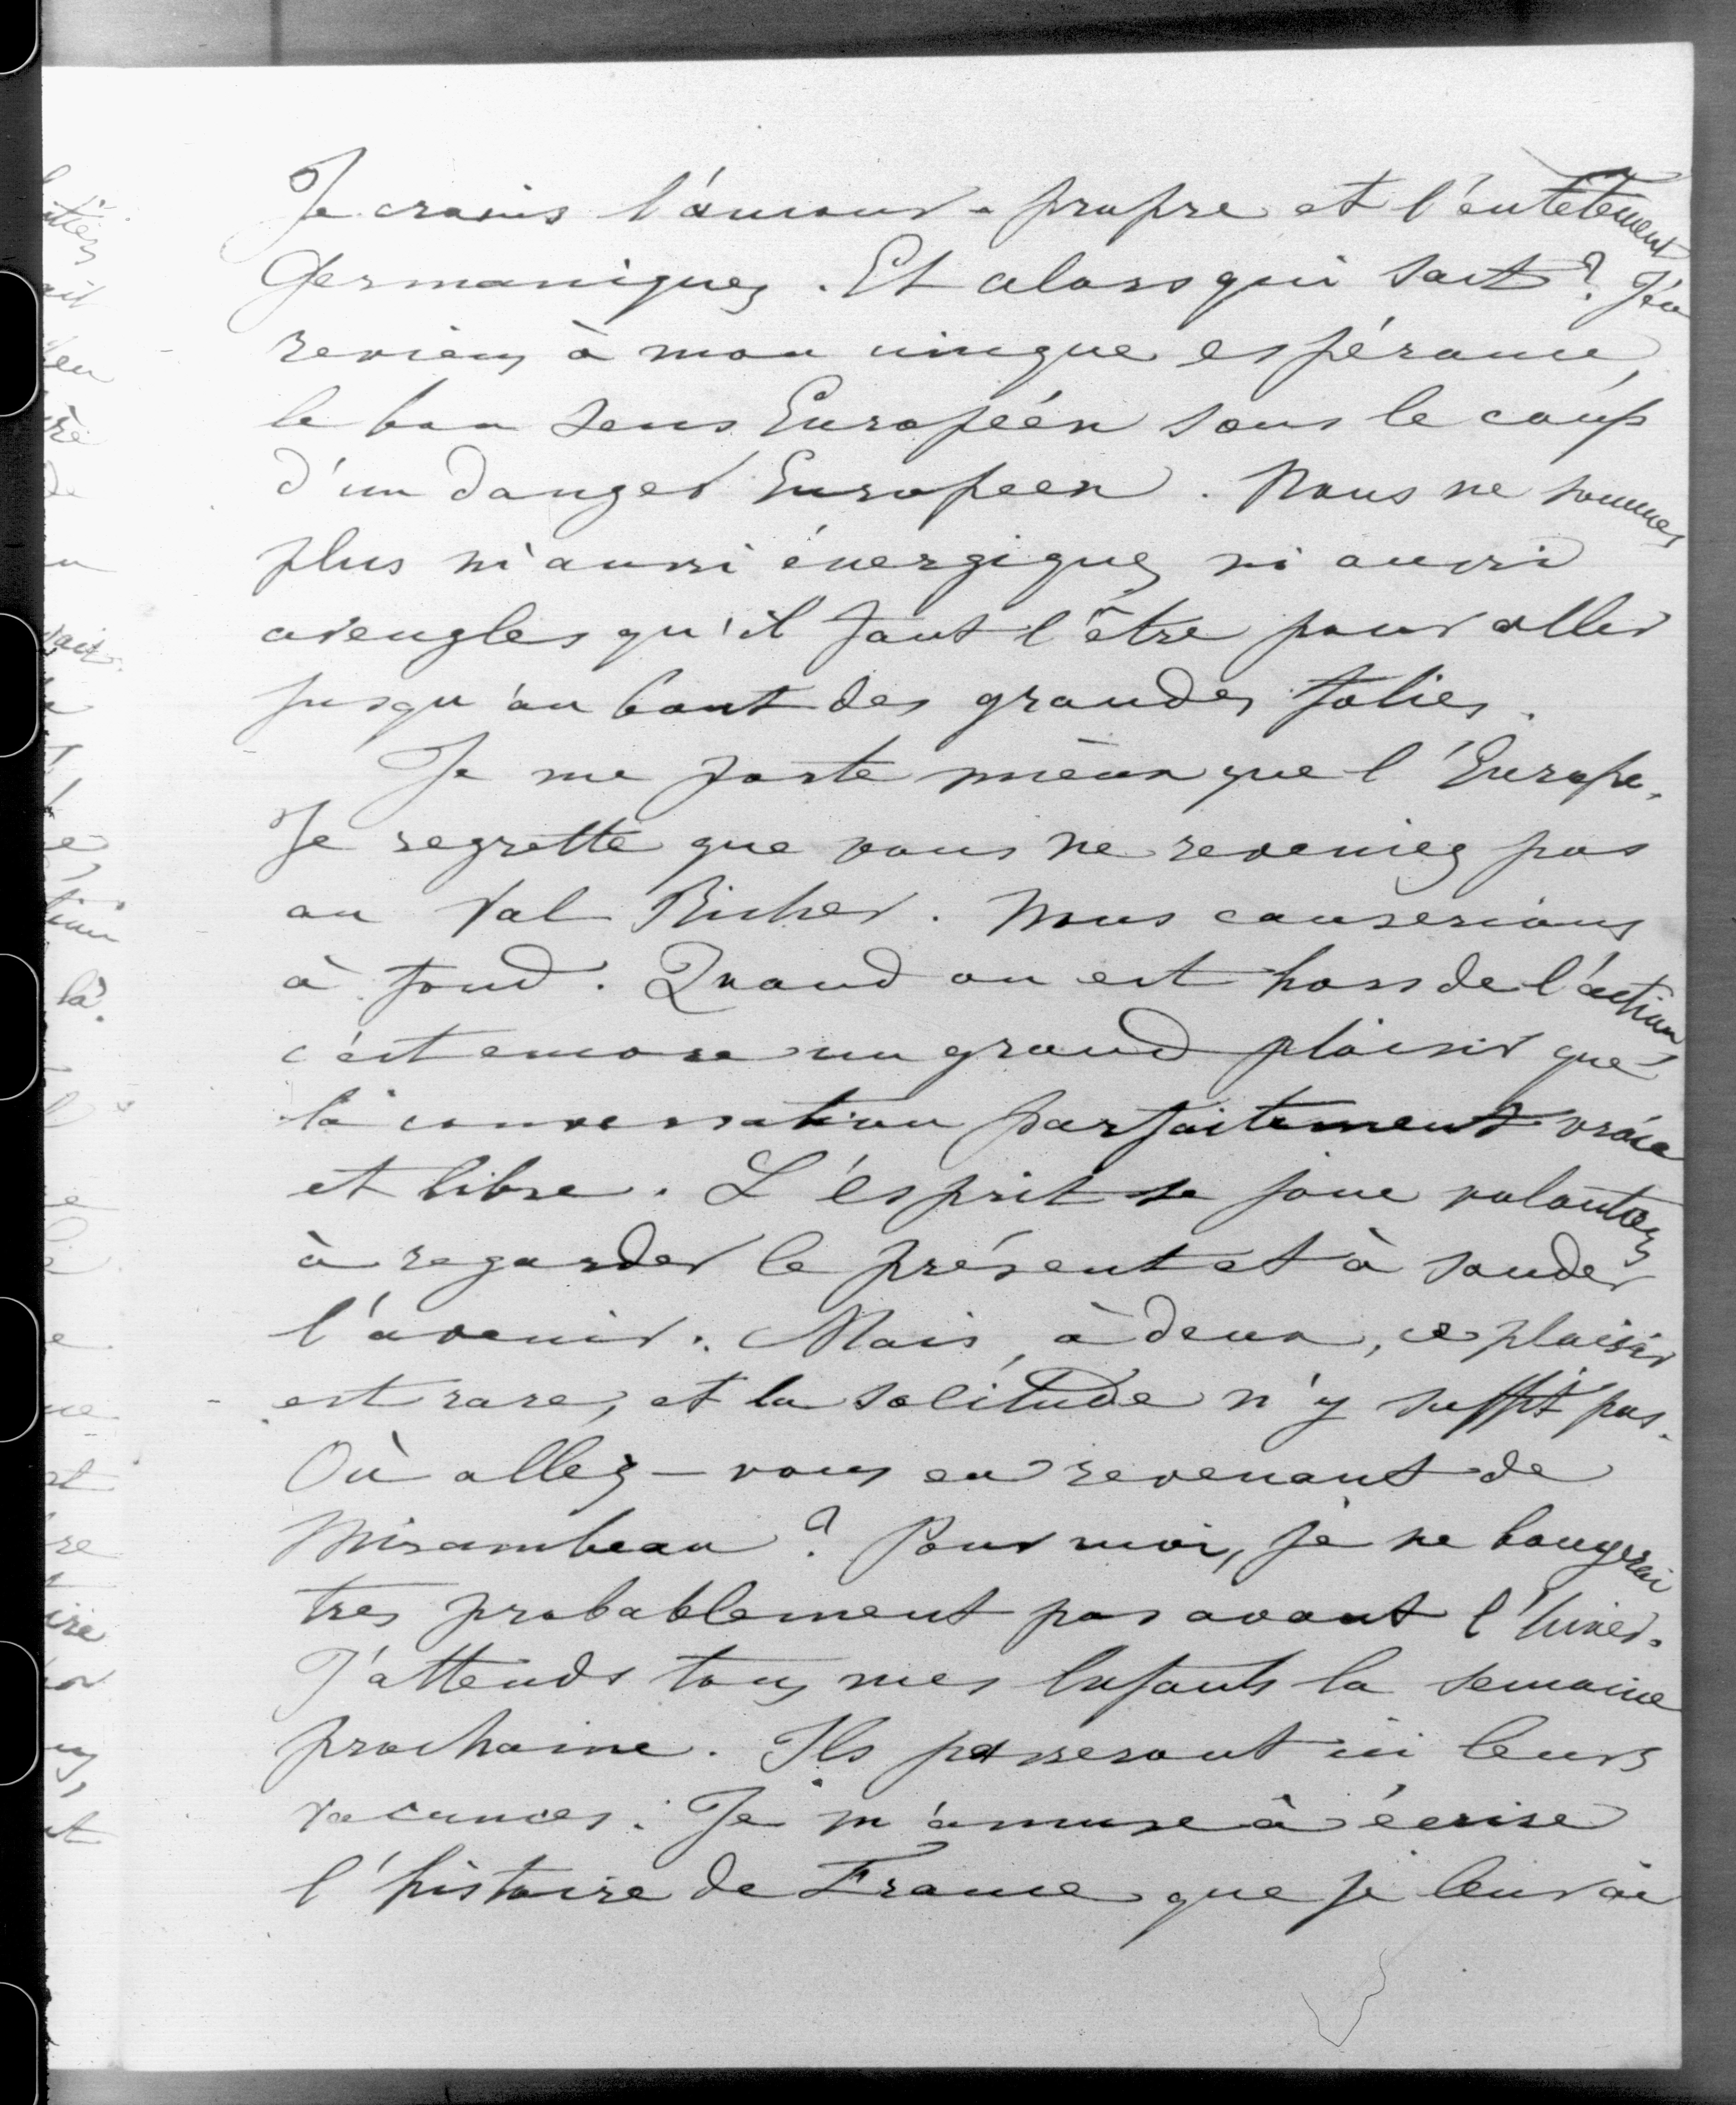 Je crains l'amour-propre et l'entêtement
Germaniques. Et alors qui sait? J'en
reviens à mon unique espérance,
le bon sens Européen sous le coup
d'un danger Européen. Nous ne sommes
plus ni aussi énergiques ni aussi
aveugles qu'il faut l'être pour aller
jusqu'au bout des grandes folies.
Je me porte mieux que l'Europe.
Je regrette que vous ne reveniez pas
au Val Richer. Nous causerions
à fond. Quand on est hors de l'action
c'est encore un grand plaisir que
la conversation parfaitement vraie
et libre. L'esprit se joue volontiers
à regarder le présent et à sonder
l'avenir. Mais, à deux, ce plaisir
est rare, et la solitude n'y suffit pas.
Où allez-vous en revenant de
Mirambeau? Pour moi, je ne bougerai
très probablement pas avant l'hiver.
J'attends tous mes Enfants la semaine
prochaine. Ils passeront ici leurs
vacances. Je m'amuse à écrire
l'histoire de France que je leur ai